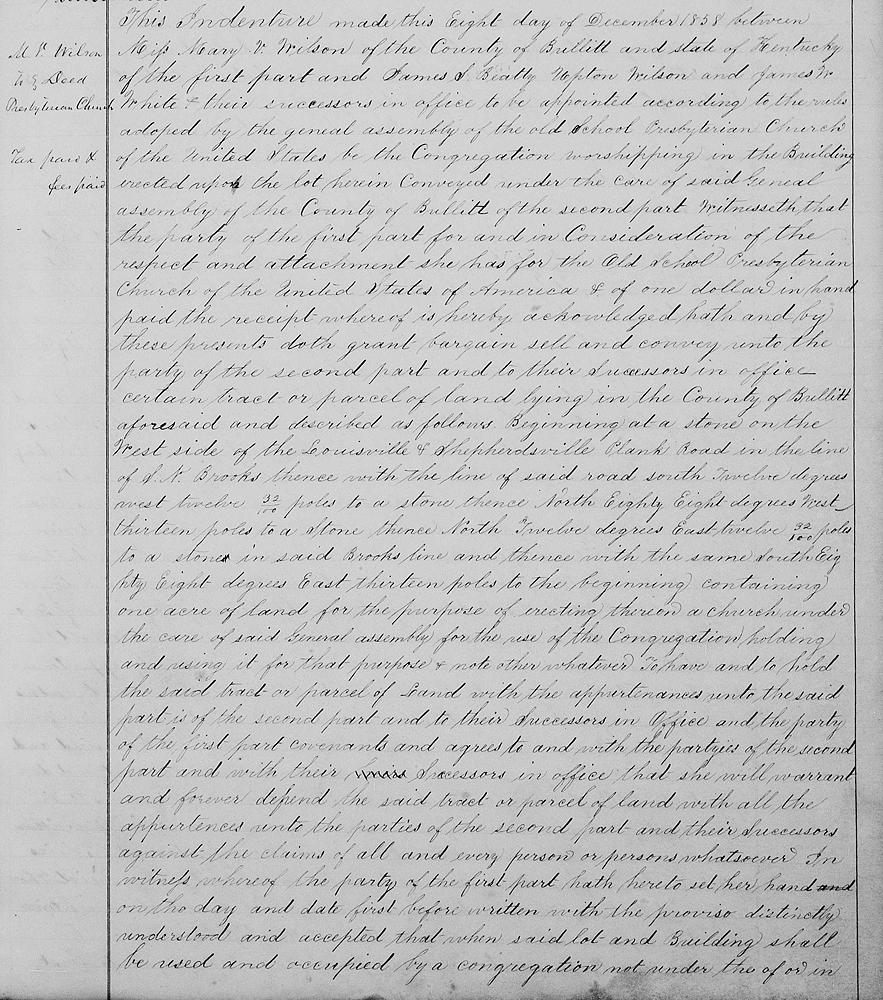 M. V. Wilson
To } Deed
Presbyterian Church
Tax paid &
fee paid
This Indenture made this Eight day of December 1858 between
Miss Mary V. Wilson of the County of Bullitt and state of Kentucky
of the first part and James S. Beatty Upton Wilson and James W
White & their successors in office to be appointed according to the rules
adoped by the geneal assembly of the old School Presbyterian Church
of the United States be the Congregation worshipping in the Building
erected upon the lot herein Conveyed under the care of said Geneal
assembly of the County of Bullitt of the second part Witnesseth that
the party of the first part for and in Consideration of the
respect and attachment she has for the Old School Presbyterian
Church of the United States of America & of one dollar in hand
paid the receipt whereof is hereby achowledged hath and by
these presents doth grant bargain sell and convey unto the
party of the second part and to their Successors in office
certain tract or parcel of land lying in the County of Bullitt
aforesaid and described as follows Beginning at a stone on the
West side of the Louisville & Shepherdsville Plank Road in the line
of S. N. Brooks thence with the line of said road south Twelve degrees
west twelve 32/100 poles to a stone thence North Eighty Eight degrees West
thirteen poles to a Stone thence North Twelve degrees East twelve 32/100 poles
to a stone in said Brooks line and thence with the same South Eig
hty Eight degrees East thirteen poles to the beginning containing
one acre of land for the purpose of erecting thereon a church under
the care of said General assembly for the use of the Congregation holding
and using it for that purpose & note other whatever To have and to hold
the said tract or parcel of Land with the appurtenances unto the said
part is of the second part and to their Successors in Office and the party
of the first part covenants and agrees to and with the partyies of the second
part and with their heirs Sucessors in office that she will warrant
and forever depend the said tract or parcel of land with all the
appurtences unto the parties of the second part and their Successors
against the claims of all and every person or persons whatsoever In
witness whereof the party of the first part hath hereto set her hand and
on tho day and date first before written with the proviso distinctly
understood and accepted that when said lot and Building shall
be used and occupied by a congregation not under the of or in